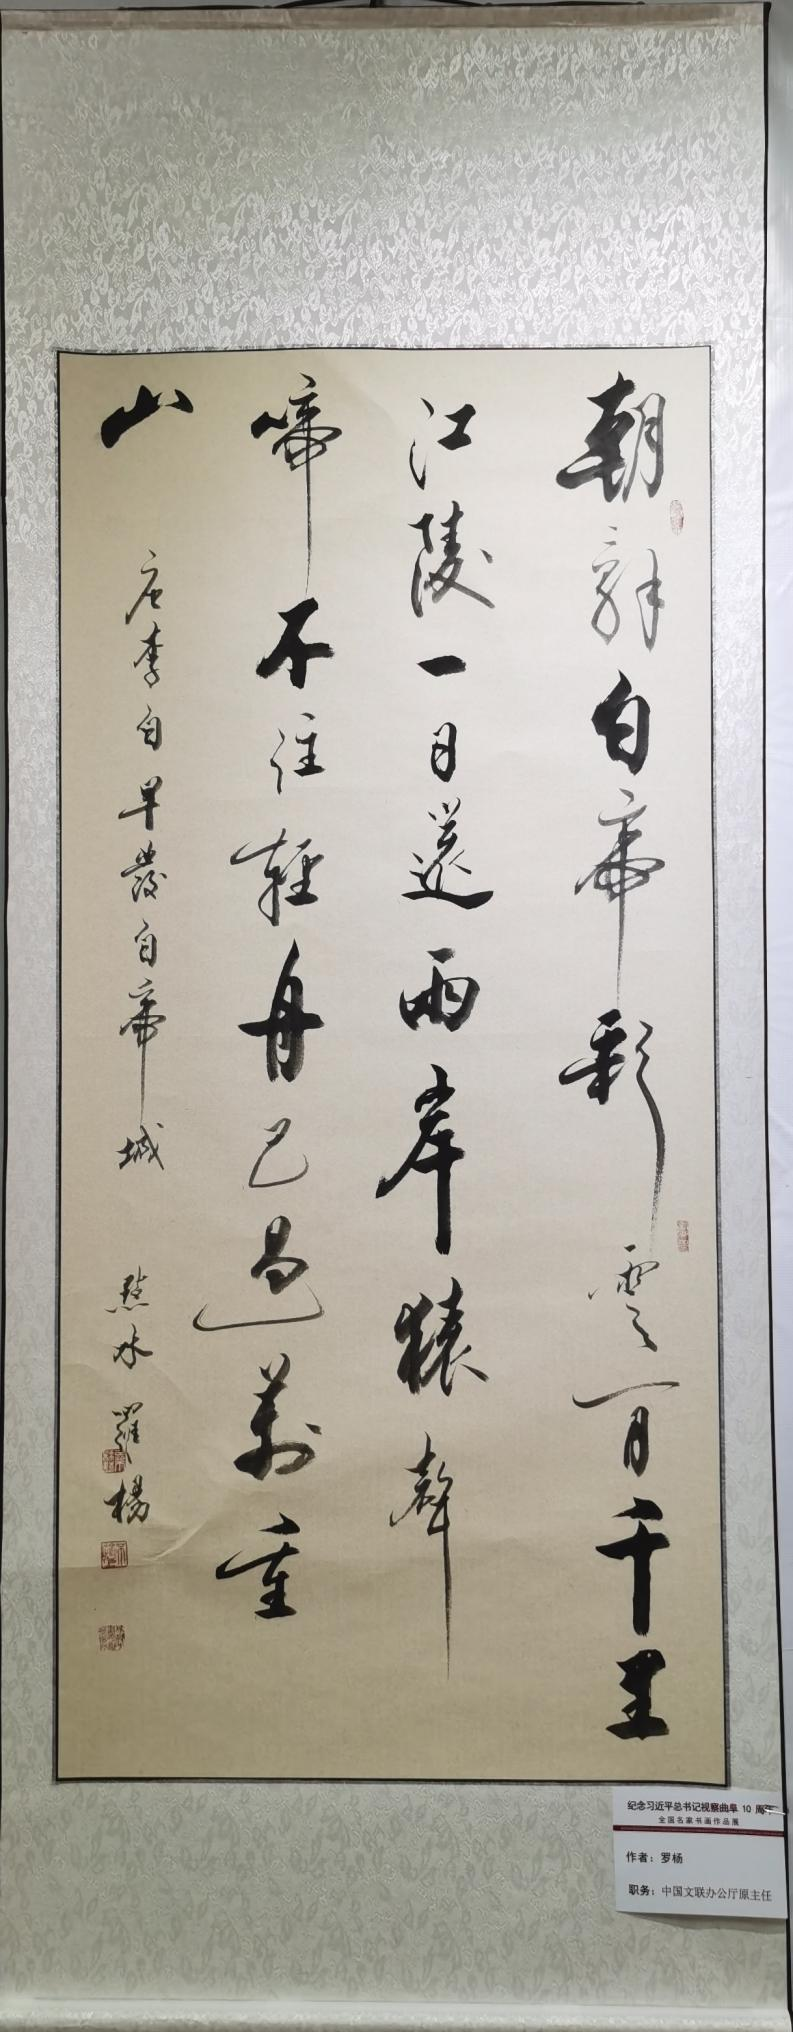 朝辞白帝彩雲一百千里
江陵一日還兩岸猿聲
啼不住輕舟已過萬重
山
唐李白早發白帝城
點水羅楊
纪念习近平总书记视察曲阜 10 周年
全国名家书画作品展
作者：罗杨
职务：中国文联办公厅原主任